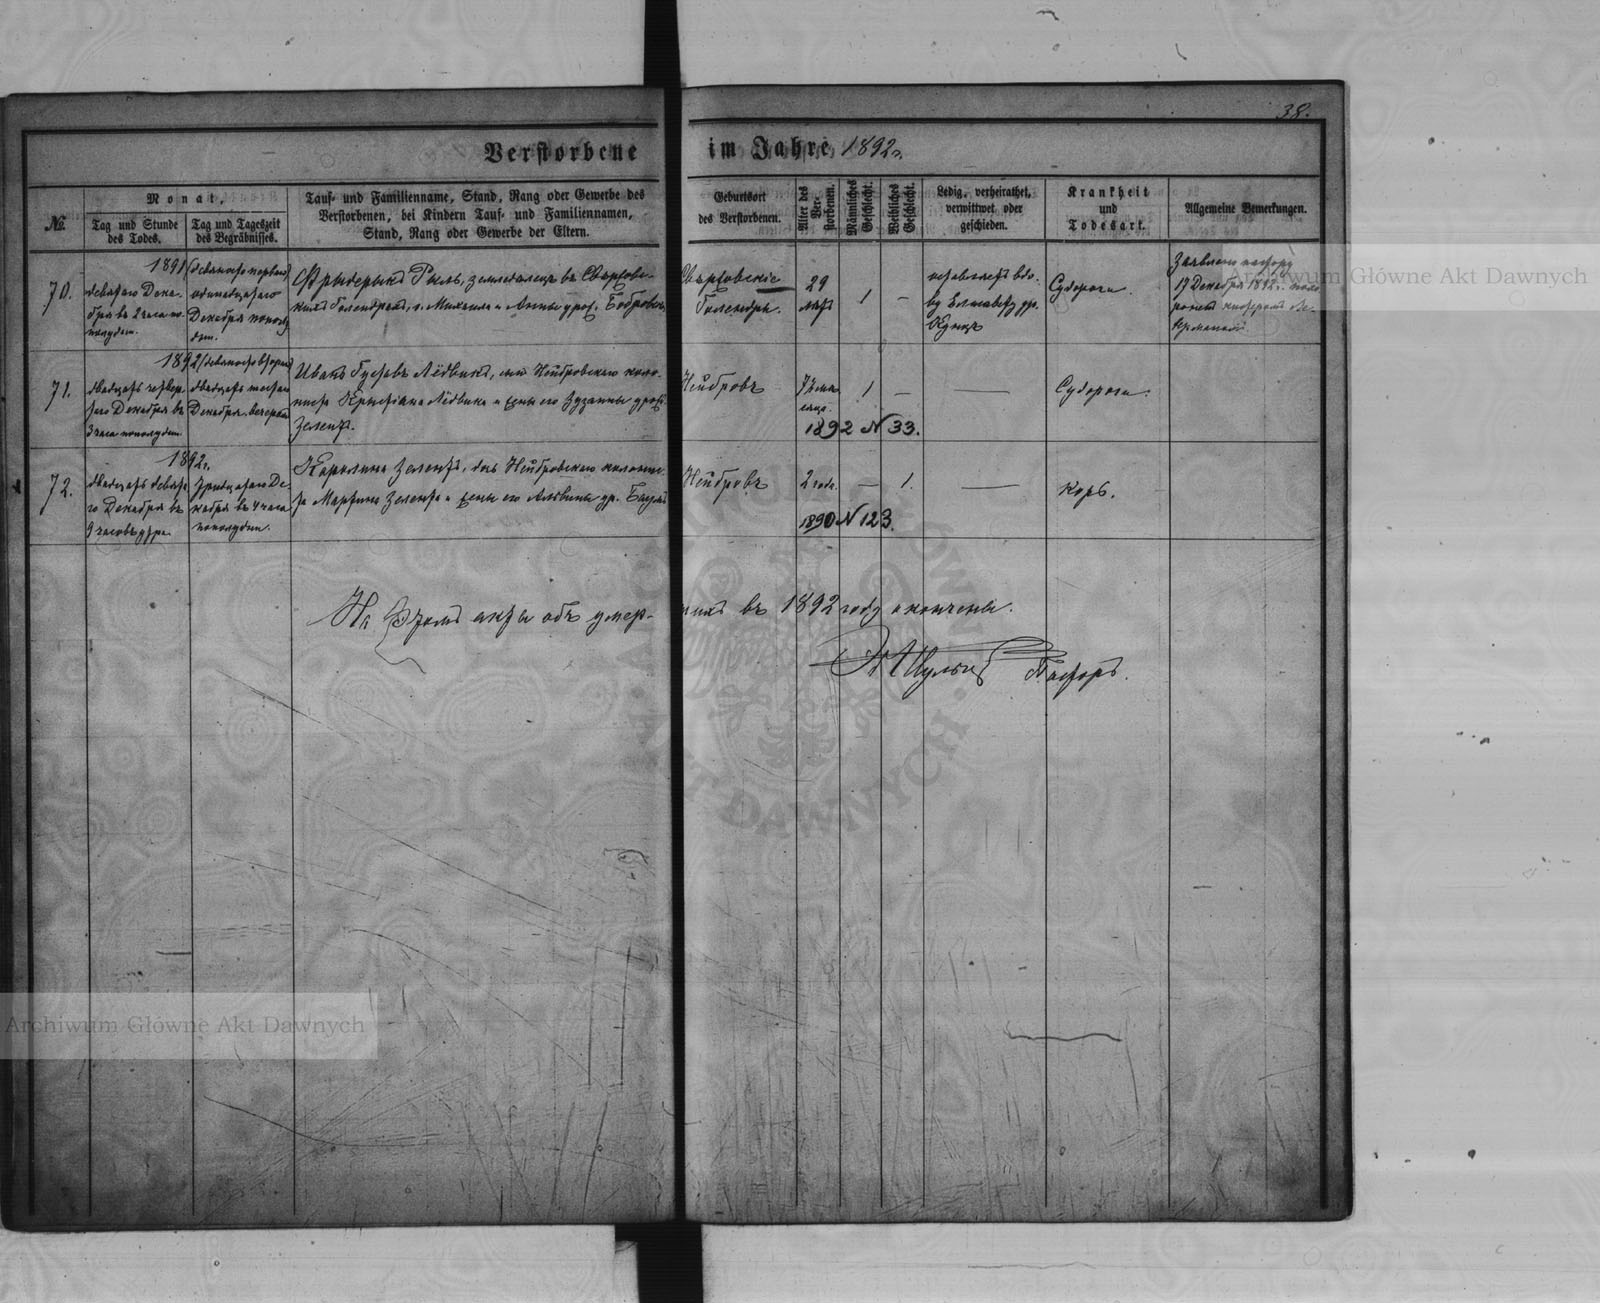 38.
Verstorbene im Jahre 1892 г.
№
Monat,
Tag und Stunde des Todes.
Tag und Tageszeit des Begräbnisses.
Tauf- und Familienname, Stand, Rang oder Gewerbe des
Verstorbenen, bei Kindern Tauf- und Familiennamen,
Stand, Rang oder Gewerbe der Eltern.
Geburtsort
des Verstorbenen.
Alter des Verstorbenen.
Männliches Geschlecht.
Weibliches Geschlecht.
Ledig, verheirathet,
verwittwet oder
geschieden.
Krankheit
und
Todesart.
Allgemeine Bemerkungen.
70.
1891
девятаго Дека-
бря въ 2 часа по-
полудни.
(девяносто перваго)
одинадцатаго
Декабря пополу-
дни.
Фрыдерыкъ Рыль, земледѣлецъ въ
кихъ Голендрахъ, с. Михаила и Анны урож.
Голендры.
29
лѣтъ
1
—
оставляетъ вдо-
ву Елисавету ур.
Кунцъ
Судороги.
Заявлено пастору
19 Декабря 1892 г.
71.
1892 (девяносто втораго)
двадцать четвер-
таго Декабря въ
3 часа пополудни.
двадцать шестаго
Декабря вечеромъ
Иванъ Густавъ Лёдвихъ, сынъ Нейбровскаго коло-
ниста Крыстіана Лёдвиха и жены его Зузанны урож.
Зеленъ.
Нейбровъ
мѣ-
сяца.
1
—
—
Судороги.
1892 N 33.
72.
1892 г.
двадцать девята-
го Декабря въ
9 часовъ утра.
тридцатаго Де-
кабря въ 4 часа
пополудни.
Каролина Зеленъ, дочь Нейбровскаго колонис-
та Мартина и жены его Альвины ур.
Нейбровъ
2 года.
—
1.
—
Корь.
1890 N 123.
На этомъ акты объ умер- шихъ въ 1892 году окончены.
Шульцъ Пасторъ.
Archiwum Główne Akt Dawnych
Archiwum Główne Akt Dawnych
AKT DAWNYCH